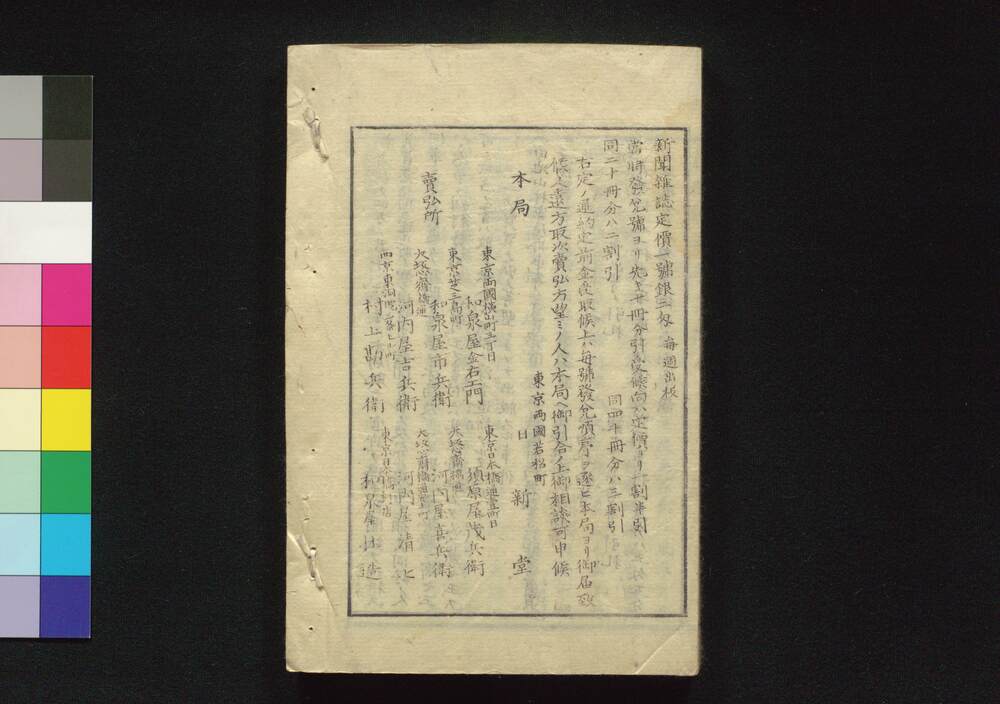 新聞雜誌定價一號銀三匁 毎週出板
當時發兌號ヨリ先キ十冊分引受候向ハ定價ヨリ一割半引
同二十冊分ハ二割引 同四十冊分ハ三割引
右定ノ通約定前金受取候上ハ毎號發兌順序ヲ逐ヒ本局ヨリ御届致
候人遠方取次賣弘方望ミノ人ハ本局ヘ御引合ノ上御相談可申候
東京兩國若松町
本局 日新堂
賣弘所
東京兩國横山町三丁目
和泉屋金右エ門
東京芝三島町
和泉屋市兵衛
大坂心齋橋通
河内屋吉兵衛
西京東洞院
村上勘兵衛
東京日本橋通壹町目
須原屋茂兵衛
大坂心齋橋通
河内屋喜兵衛
大坂心齋橋通
河内屋清七
東京日本橋
和泉屋